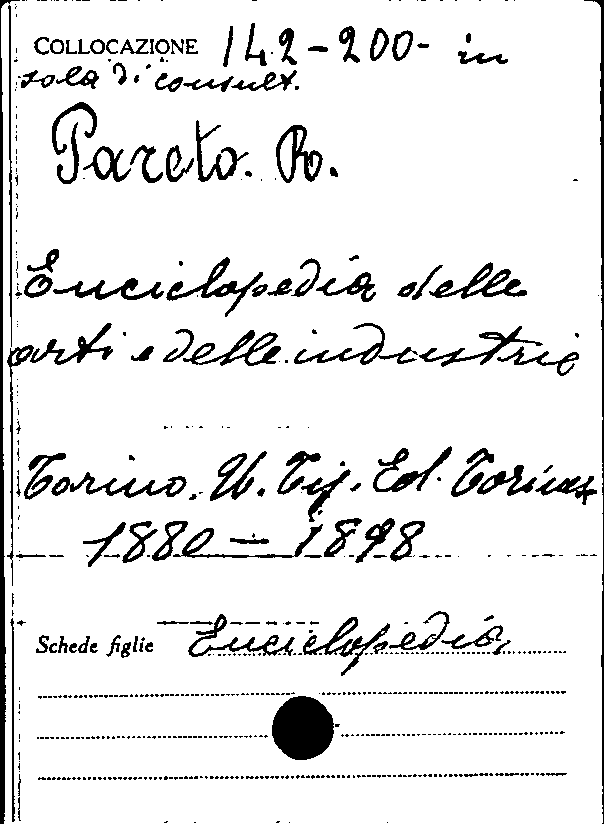 COLLOCAZIONE 142-200- in
sala di consult.
Pareto. R.
Enciclopedia delle
arti e delle industrie
Torino. U. Tip. Ed. Torines
1880 – 1898
Schede figlie Enciclopedia